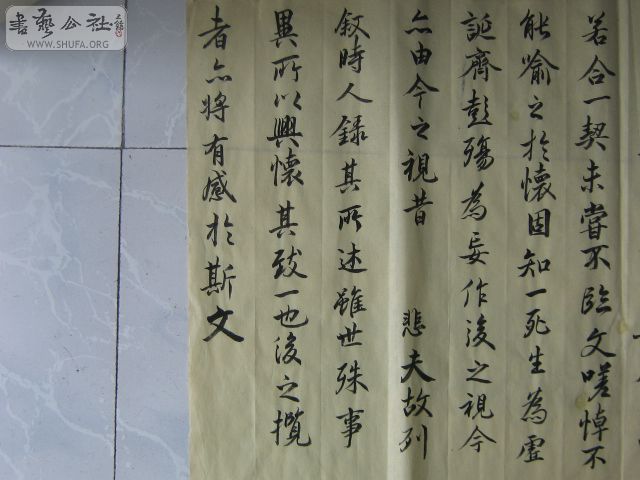 若合一契未嘗不臨文嗟悼不
能喻之於懷固知一死生為虛
誕齊彭殤為妄作後之視今
亦由今之視昔 悲夫故列
敘時人錄其所述雖世殊事
異所以興懷其致一也後之攬
者亦將有感於斯文
書藝公社
WWW.SHUFA.ORG